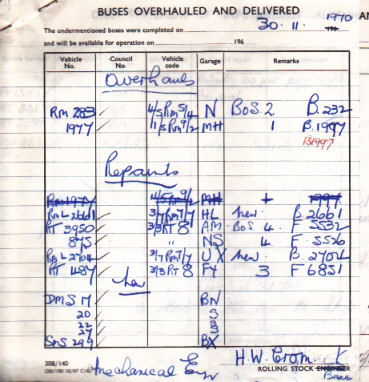 BUSES OVERHAULED AND DELIVERED
The undermentioned buses were completed on 30 . 11 . 1970
and will be available for operation on 196
Vehicle No. Council No. Vehicle code Garage Remarks
Overhauls
RM 283 4/5RM5/4 N BoS. 2 B. 232
1977 11/5RM9/2 MH 1 B. 1997
B1997
Repaints
RM 1977 MH 1 1997
RML 2661 3/7RM7/7 HL New. B 2661
RT 3950 3/3RT8 AM BoS 4 F 5532
875 " NS 4. F 5526
RML 2704 3/7RM7/7 UX New. B 2704
RT 1487 3/3RT8 FY 3 F 6851
New
DMS 17 BN
20 S
22 S
27 S
SMS 299 BX
30B/140
Mechanical Eng H.W. Crom
ROLLING STOCK ENGINEER